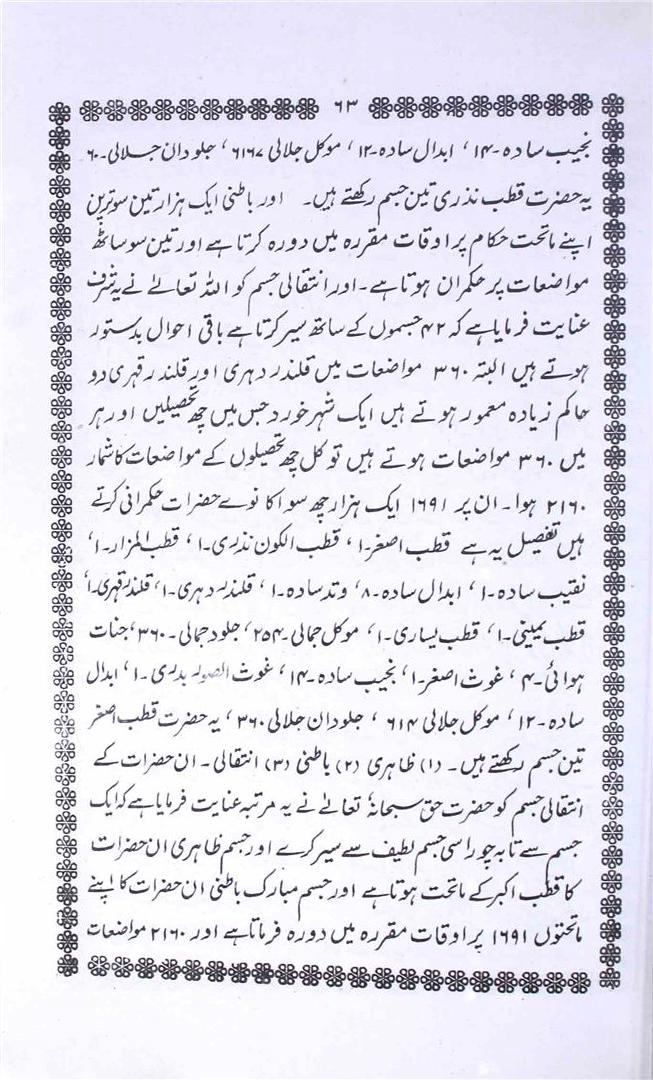 ۶۳
نجیب سادہ-۱۴، ابدال سادہ-۱۲، موکل جلالی ۶۱۶۷، جلودان جلالی-۶۰
یہ حضرت قطب نذری تین جسم رکھتے ہیں۔ اور باطنی ایک ہزار تین سو ترپن
اپنے ماتحت حکام پر اوقات مقررہ میں دورہ کرتا ہے اور تین سو ساٹھ
مواضعات پر حکمران ہوتا ہے۔ اور انتقالی جسم کو اللہ تعالےٰ نے یہ شرف
عنایت فرمایا ہے کہ ۴۲ جسموں کے ساتھ سیر کرتا ہے باقی احوال بدستور
ہوتے ہیں البتہ ۳۶۰ مواضعات میں قلندر دہری اور قلندر قہری دو
حاکم زیادہ معمور ہوتے ہیں ایک شہر خورد جس میں چھ تحصیلیں اور ہر
میں ۳۶۰ مواضعات ہوتے ہیں تو کل چھ تحصیلوں کے مواضعات کا شمار
۲۱۶۰ ہوا۔ ان پر ۱۶۹۱ ایک ہزار چھ سو اکانوے حضرات حکمرانی کرتے
ہیں تفصیل یہ ہے قطب اصغر-۱، قطب الکون نذری-۱، قطب المزار-۱،
نقیب سادہ-۱، ابدال سادہ-۸، وتد سادہ-۱، قلندر دہری-۱، قلندر قہری-۱،
قطب یمینی-۱، قطب یساری-۱، موکل جمالی-۲۵۴، جلود جمالی-۳۶۰، جنات
ہوائی-۴، غوث اصغر-۱، نجیب سادہ-۱۴، غوث بدری-۱، ابدال
سادہ-۱۲، موکل جلالی ۶۱۴، جلودان جلالی ۳۶۰، یہ حضرت قطب اصغر
تین جسم رکھتے ہیں۔ (۱) ظاہری (۲) باطنی (۳) انتقالی۔ ان حضرات کے
انتقالی جسم کو حضرت حق سبحانہٗ تعالےٰ نے یہ مرتبہ عنایت فرمایا ہے کہ ایک
جسم سے تا بہ چوراسی جسم لطیف سے سیر کرے اور جسم ظاہری ان حضرات
کا قطب اکبر کے ماتحت ہوتا ہے اور جسم مبارک باطنی ان حضرات کا اپنے
ماتحتوں ۱۶۹۱ پر اوقات مقررہ میں دورہ فرماتا ہے اور ۲۱۶۰ مواضعات